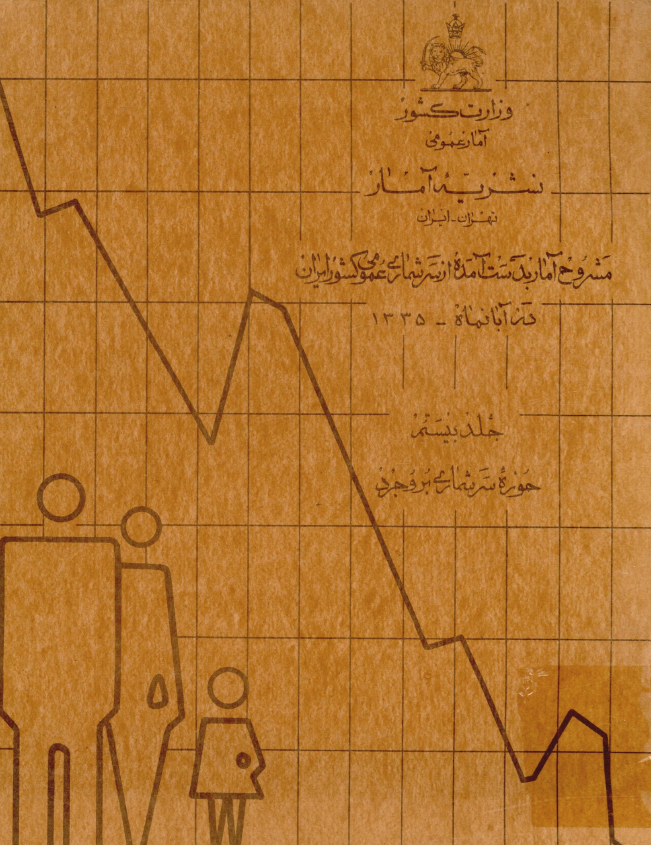 وزارت کشور
آمار عمومی
نشریه آمار
تهران - ایران
مشروح آمار بدست آمده از سرشماری عمومی کشور ایران
در آبانماه - ۱۳۳۵
جلد بیستم
حوزه سرشماری بروجرد